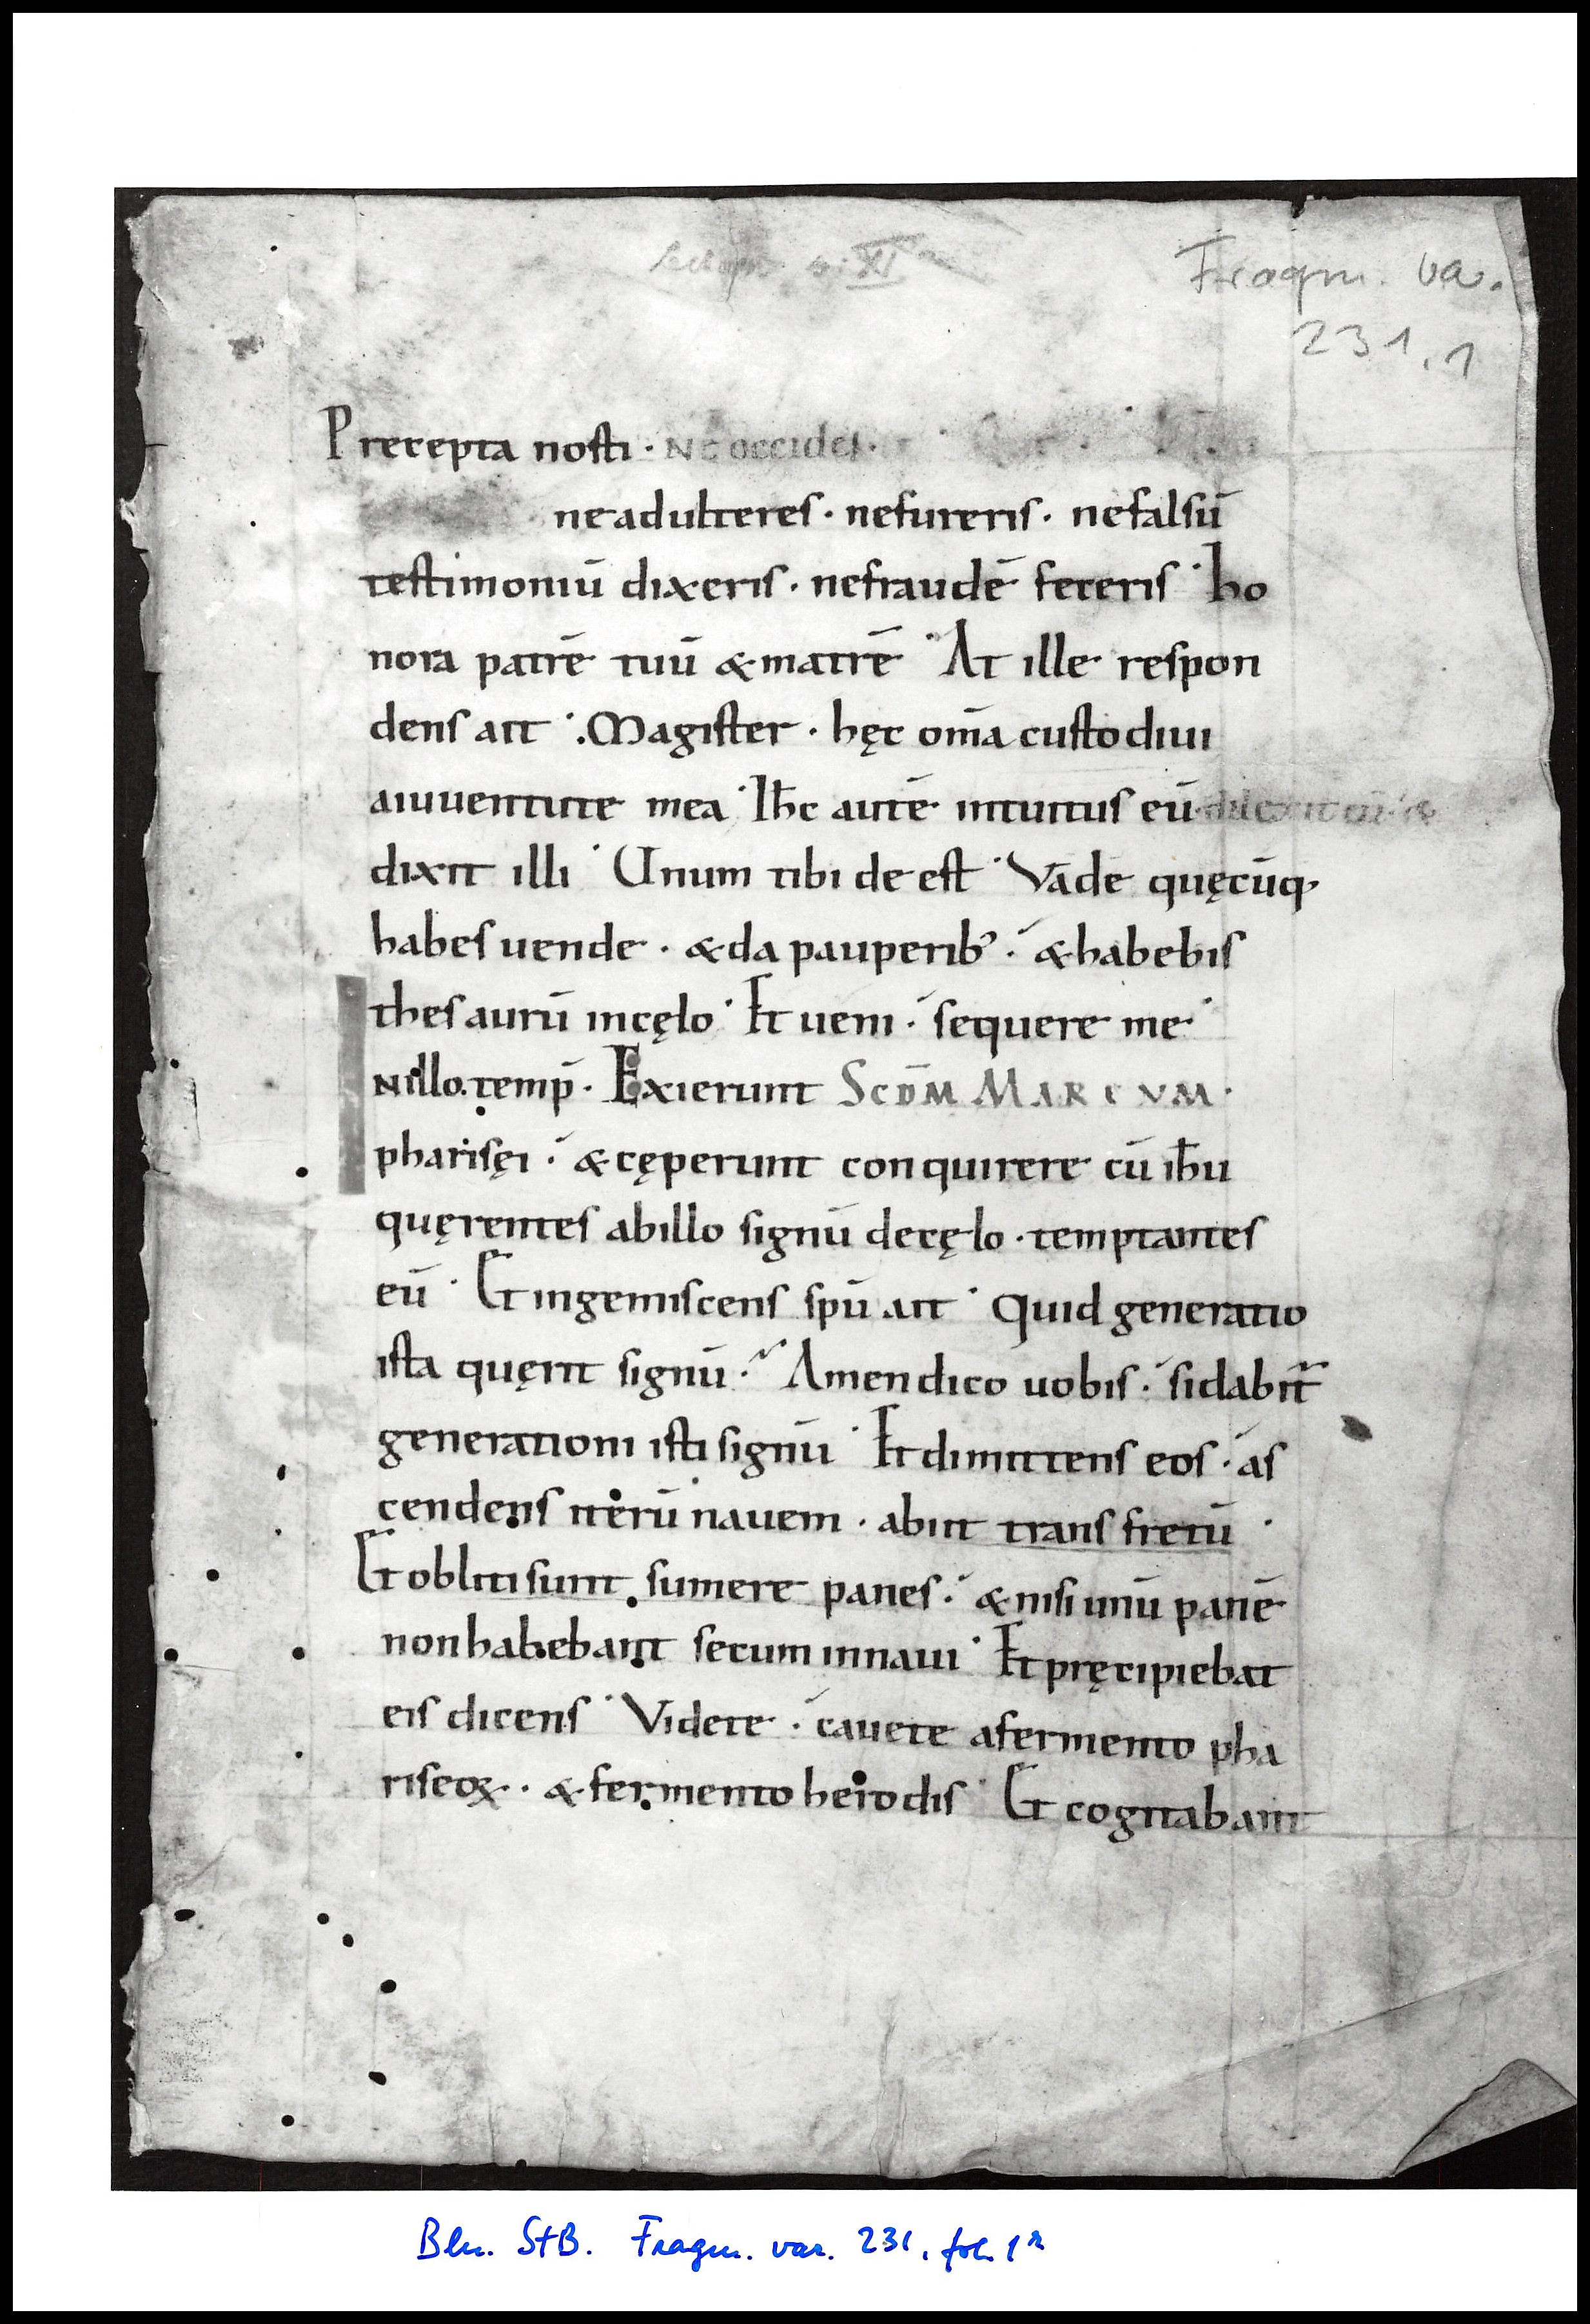 Fragm. va.
231,1
Precepta nosti · Ne occides ·
ne adulteres · ne fureris · ne falsū
testimoniū dixeris · ne fraudē feceris · ho
nora patrē tuū & matrē · At ille respon
dens ait · Magister · hęc om̄a custodiui
aiuuentute mea · Ih̄c autē intuitus eū dilexit eū · &
dixit illi · Unum tibi de est · Vade quęcūq·
habes uende · & da pauperib᾿ · & habebis
thesaurū incęlo · Et ueni · sequere me ·
INillo temp̄ · Exierunt SCDM MARCVM ·
pharisęi · & cęperunt conquirere cū ih̄u
quęrentes abillo signū decęlo · temptantes
eū · Et ingemiscens sp̄u ait · Quid generatio
ista quęrit signū · Amen dico uobis · si dabit᷑
generationi isti signū · Et dimittens eos · as
cendens iterū nauem · abiit trans fretū ·
Et obliti sunt sumere panes · & nisi unū panē
non habebant secum innaui · Et pręcipiebat
eis dicens · Videte · cauete afermento pha
riseoꝝ · & fermento herodis · Et cogitabant
Bln. StB. Fragm. var. 231, fol. 1r